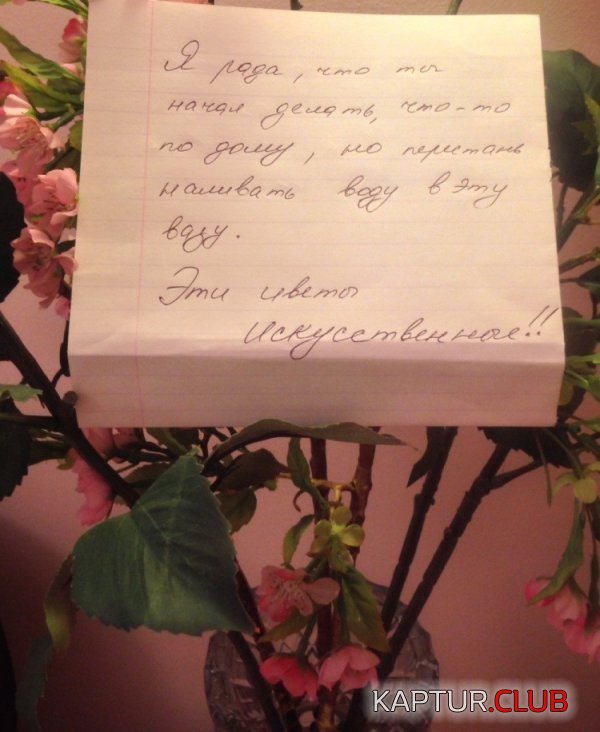 Я рада, что ты
начал делать, что-то
по дому, но перестань
наливать воду в эту
вазу.
Эти цветы
искусственные!!
KAPTUR.CLUB